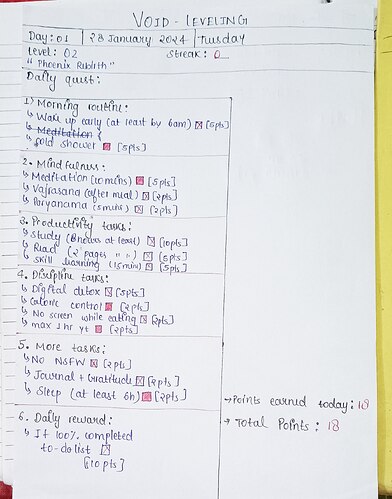 VOID - LEVELING
Day: 01 | 28 January 2024 | Tuesday
Level: 02 Streak: 0
"Phoenix Rebirth"
Daily quest:
1) Morning routine:
↳ Wake up early (at least by 6am) ☒ [5pts]
↳ Meditation
↳ Cold shower [5pts]
2. Mindfulness:
↳ Meditation (10 mins) [5pts]
↳ Vajrasana (after meal) ☒ [2pts]
↳ Paryanama (5 mins) ☒ [2pts]
3. Productivity tasks:
↳ Study (8 hours at least) ☒ [10pts]
↳ Read (2 pages " ") ☒ [5pts]
↳ Skill learning (15 min) ☒ [5pts]
4. Discipline tasks:
↳ Digital detox ☒ [5pts]
↳ Calorie control [2pts]
↳ No screen while eating ☒ [2pts]
↳ max 1 hr yt [2pts]
5. More tasks:
↳ No NSFW ☒ [2pts]
↳ Journal + Gratitude ☒ [2pts]
↳ Sleep (at least 6h) [2pts]
→ Points earned today: 18
→ Total Points: 18
6. Daily reward:
↳ If 100% completed
to-do list ☒
[10 pts]